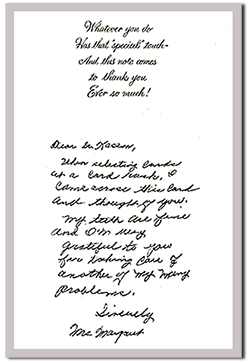 Whatever you do
Has that "special" touch-
And this note comes
to thank you
Ever so much!
Dear Dr. Kazemi,
When selecting cards
at a card rack, I
came across this card
and thought of you.
My teeth are fine
and I'm very
grateful to you
for taking care of
another of my many
problems.
Sincerely
Mrs Margaret